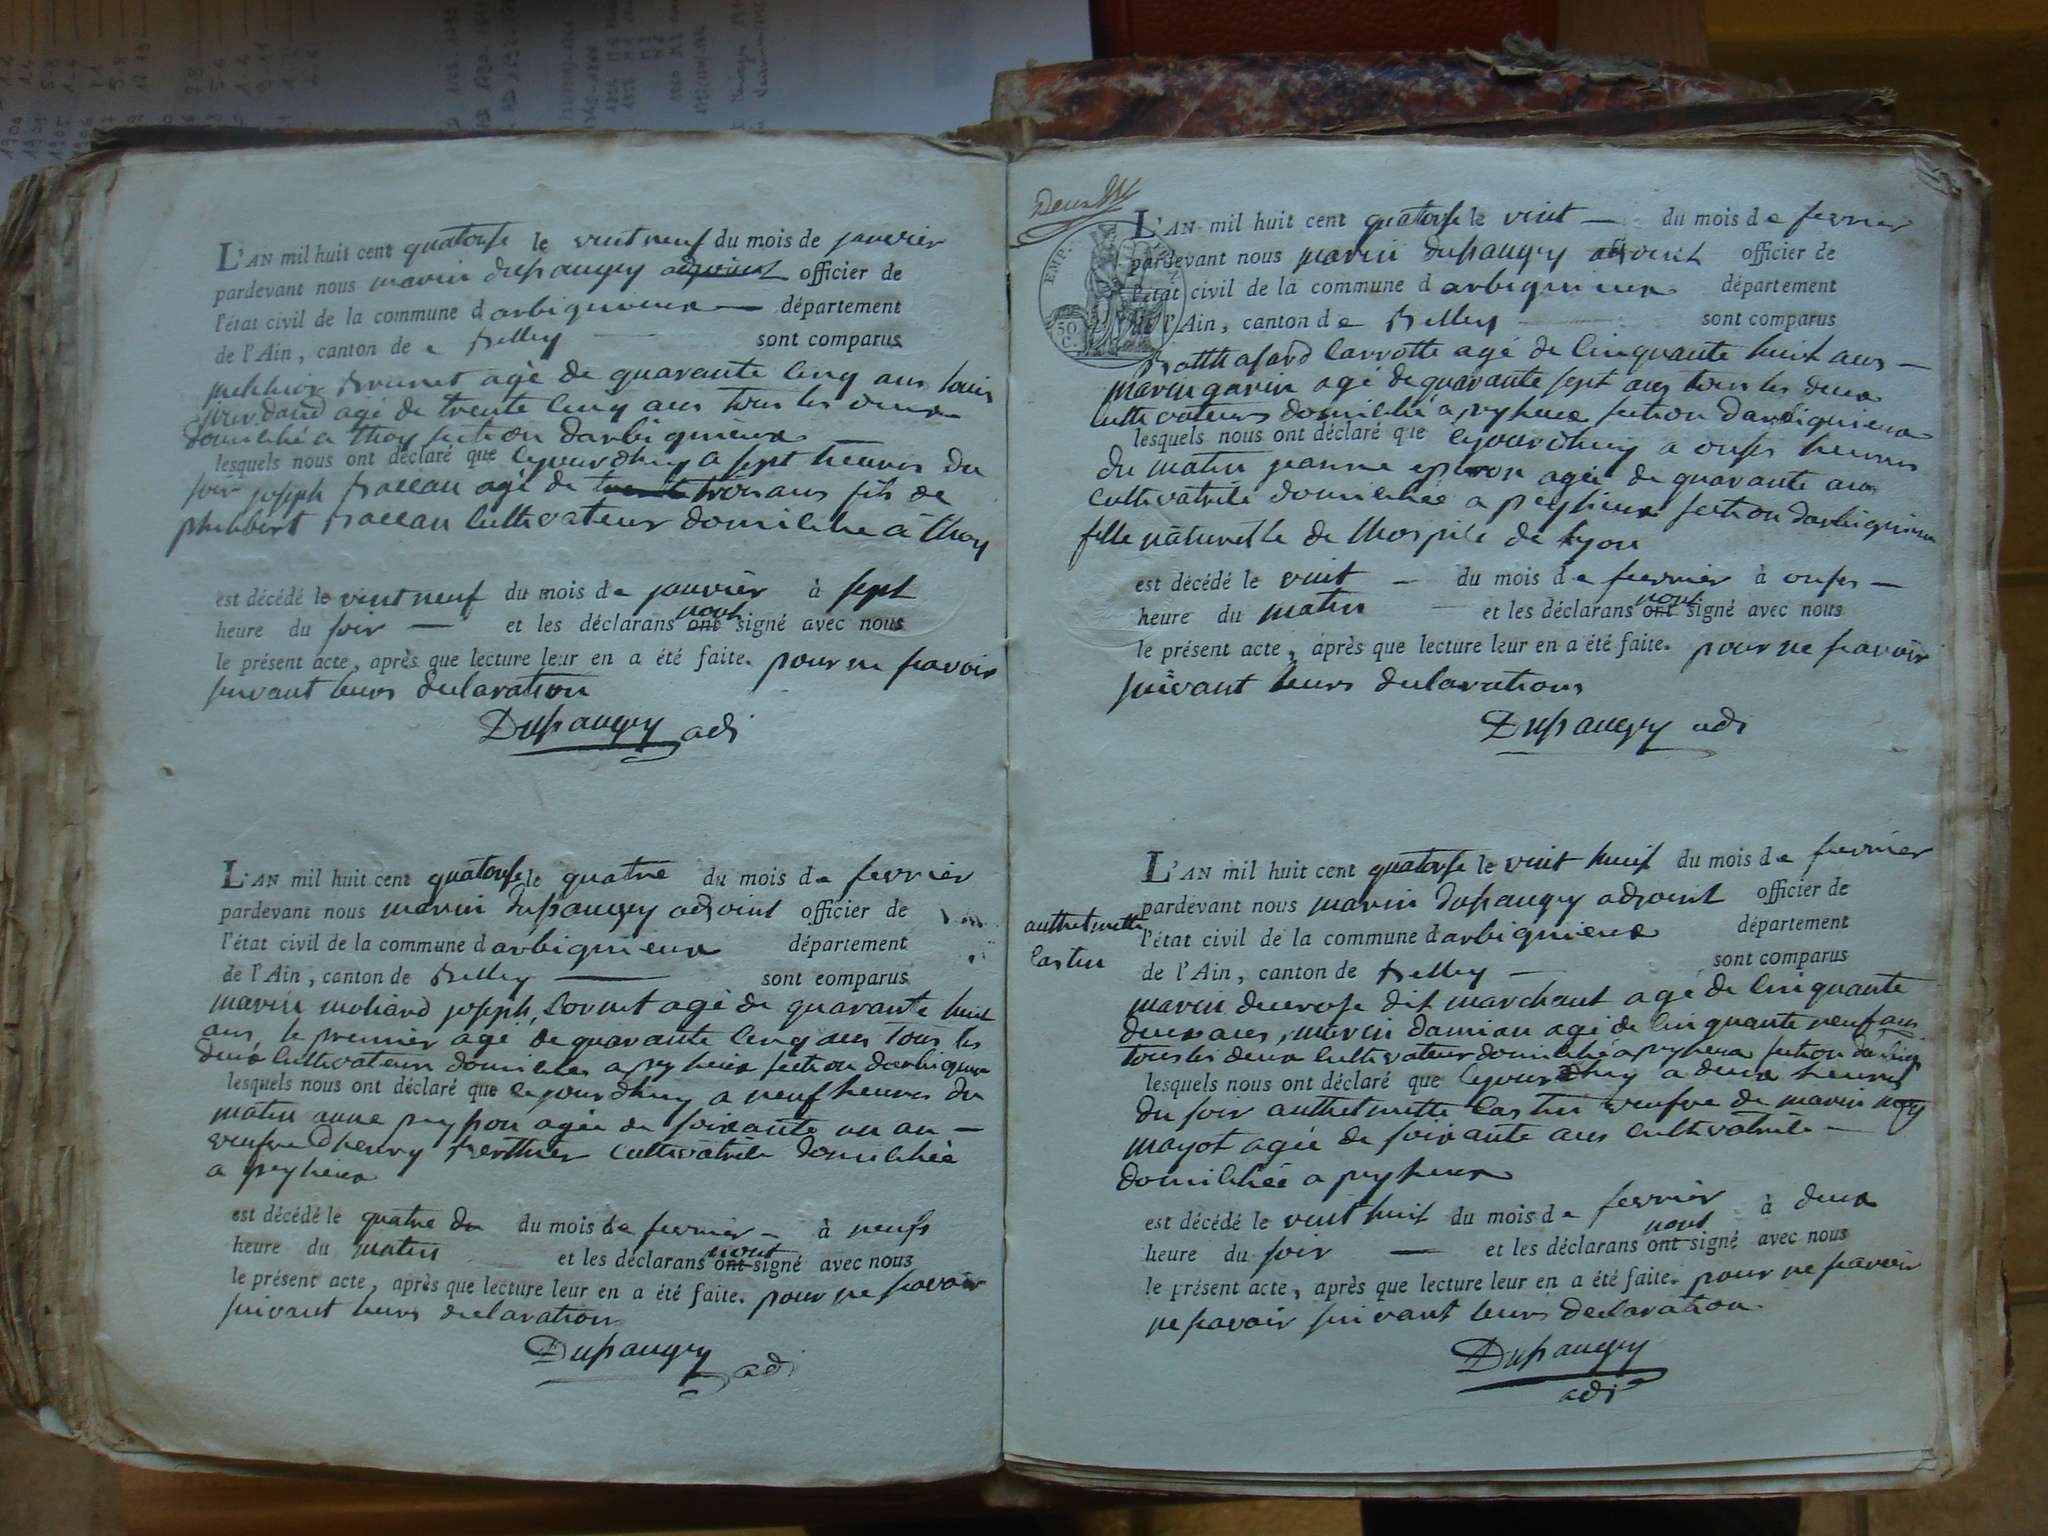 L'AN mil huit cent quatorse le vint neuf du mois de janvier
pardevant nous marin dupaugey adjoint officier de
l'état civil de la commune d arbignieux département
de l'Ain, canton de Belley sont comparus
melchior Brunet agé de quarante cinq ans louis
jourdand agé de trente cinq ans tous les deux
domicilié a thoy section darbignieux
lesquels nous ont déclaré que cejourdhuy a sept heures du
soir joseph agé de trois ans fils de
philibert cultivateur domicilié à thoy
est décédé le vint neuf du mois de janvier à sept
heure du soir et les déclarans ont nont signé avec nous
le présent acte, après que lecture leur en a été faite. pour ne savoir
suivant leurs declaration
Dupaugey adj
L'AN mil huit cent quatorse le quatre du mois de fevrier
pardevant nous marin dupaugey adjoint officier de
l'état civil de la commune d arbignieux département
de l'Ain, canton de Belley sont comparus
marin moliard joseph agé de quarante huit
ans, le premier agé de quarante cinq ans tous les
deux cultivateurs domiciliés a peyzieux section darbignieux
lesquels nous ont déclaré que cejourdhuy a neuf heures du
matin anne agée de soixante un an
veufve dhenry Berthier cultivatrice domiciliée
a peyzieux
est décédé le quatre du du mois de fevrier à neufs
heure du matin et les déclarans ont nont signé avec nous
le présent acte, après que lecture leur en a été faite. pour ne savoir
suivant leurs declaration
Dupaugey adj
EMP.
50
C.
L'AN mil huit cent quatorse le vint du mois de fevrier
pardevant nous marin dupaugey adjoint officier de
l'état civil de la commune d arbignieux département
de l'Ain, canton de Belley sont comparus
carrotte agé de cinquante huit ans
marin gavin agé de quarante sept ans tous les deux
cultivateurs domicilié a peyzieux section darbignieux
lesquels nous ont déclaré que cejourdhuy a onses heures
du matin jeanne agée de quarante ans
cultivatrice domiciliée a peyzieux section darbignieux
fille naturelle de lhospice de lyon
est décédé le vint du mois de fevrier à onses
heure du matin et les déclarans ont nont signé avec nous
le présent acte, après que lecture leur en a été faite. pour ne savoir
suivant leurs declarations
Dupaugey adj
L'AN mil huit cent quatorse le vint huit du mois de fevrier
pardevant nous marin dupaugey adjoint officier de
anthelmette
l'état civil de la commune d arbignieux département
castin
de l'Ain, canton de Belley sont comparus
marin ducrose dit marchant agé de cinquante
deux ans, marin damian agé de cinquante neuf ans
tous les deux cultivateur domicilié a peyzieux section darbig
lesquels nous ont déclaré que cejourdhuy a deux heures
du soir anthelmette castin veufve de marin
mayot agée de soixante ans cultivatrice
domiciliée a peyzieux
est décédé le vint huit du mois de fevrier à deux
heure du soir et les déclarans ont nont signé avec nous
le présent acte, après que lecture leur en a été faite. pour ne savoir
ne savoir suivant leurs declaration.
Dupaugey
adj